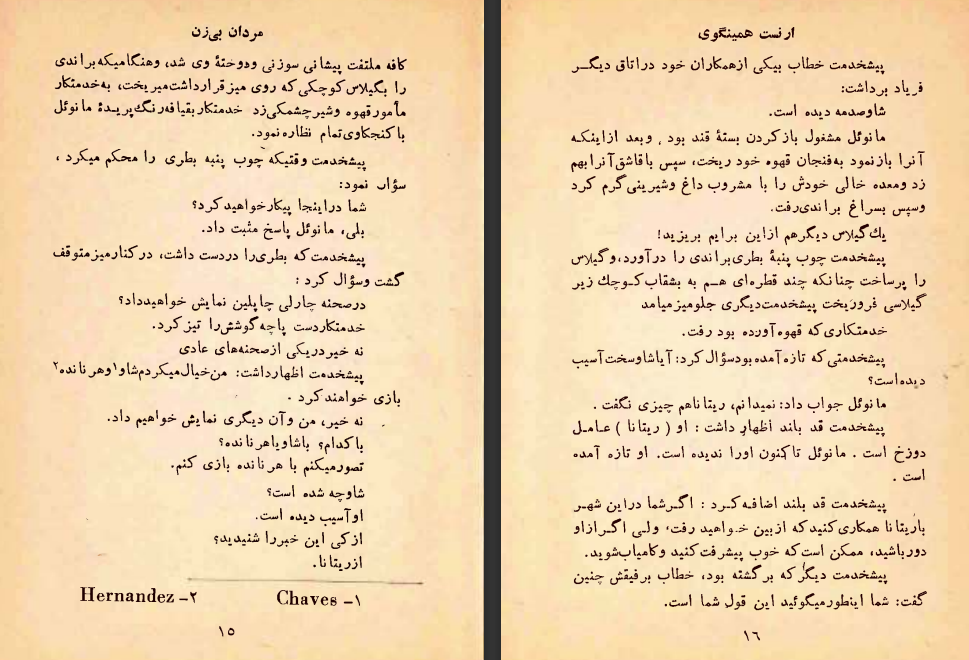 مردان بی‌زن
کافه ملتفت پیشانی سوزنی ودوختهٔ وی شد، وهنگامیکه براندی
را بگیلاس کوچکی که روی میز قرارداشت میریخت، به خدمتکار
مأمورقهوه وشیرچشمکی زد خدمتکار بقیافه رنگ پریدهٔ مانوئل
با کنجکاوی تمام نظاره نمود.
پیشخدمت وقتیکه چوب پنبه بطری را محکم میکرد ،
سؤال نمود:
شما دراینجا پیکارخواهیدکرد؟
بلی، مانوئل پاسخ مثبت داد.
پیشخدمت که بطری‌را دردست داشت، درکنارمیز متوقف
گشت وسؤال کرد :
درصحنه چارلی چاپلین نمایش خواهیدداد؟
خدمتکاردست پاچه گوشش‌را تیز کرد.
نه خیر دریکی ازصحنه‌های عادی
پیشخدمت اظهارداشت: من‌خیال‌میکردم‌شاو۱وهر ناند‌ه۲
بازی خواهند کرد .
نه خیر، من وآن دیگری نمایش خواهیم داد.
با کدام؟ باشاویاهر نانده؟
تصورمیکنم با هر نانده بازی کنم.
شاوچه شده است؟
اوآسیب دیده است.
ازکی این خبررا شنیدید؟
ازریتانا.
۱– Chaves ۲– Hernandez
۱۵
ارنست همینگوی
پیشخدمت خطاب بیکی ازهمکاران خود دراتاق دیگــر
فریاد برداشت:
شاوصدمه دیده است.
مانوئل مشغول بازکردن بستهٔ قند بود . وبعد ازاینکـه
آنرا بازنمود به‌فنجان قهوه خود ریخت، سپس باقاشق‌آنرابهم
زد ومعده خالی خودش را با مشروب داغ وشیرینی‌گرم کرد
وسپس بسراغ براندی‌رفت.
یك گیلاس دیگرهم ازاین برایم بریزید!
پیشخدمت چوب پنبهٔ بطری‌براندی را درآورد،وگیلاس
را پرساخت چنانکه چند قطره‌ای هـم به بشقاب‌کـوچك زیر
گیلاسی فروریخت پیشخدمت‌دیگری جلومیزمیامد
خدمتکاری که قهوه‌آورده بود رفت.
پیشخدمتی که تازه‌آمده‌بودسؤال کرد: آیاشاوسخت‌آسیب
دیده‌است؟
مانوئل جواب داد: نمیدانم، ریتاناهم چیزی نگفت .
پیشخدمت قد بلند اظهار داشت : او ( ریتانا ) عـامـل
دوزخ است . مانوئل تاکنون اورا ندیده است. او تازه آمده
است .
پیشخدمت قد بلند اضافـه کـرد : اگـرشما دراین شهـر
باریتانا همکاری‌کنیدکه ازبین خـواهید رفت، ولـی اگـرازاو
دورباشید، ممکن است‌که خوب پیشرفت‌کنید وکامیاب‌شوید.
پیشخدمت دیگر که برگشته بود، خطاب برفیقش چنین
گفت: شما اینطورمیگوئید این قول شما است.
۱۶